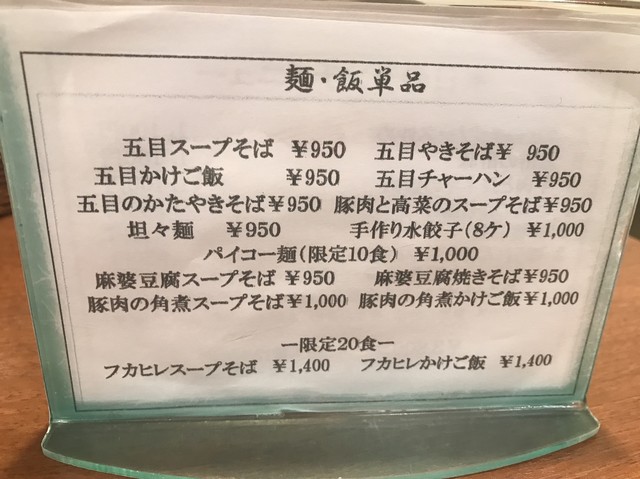 麺・飯単品
五目スープそば ￥950 五目やきそば￥ 950
五目かけご飯 ￥950 五目チャーハン ￥950
五目のかたやきそば￥950 豚肉と高菜のスープそば￥950
坦々麺 ￥950 手作り水餃子(8ケ) ￥1,000
パイコー麺(限定10食) ￥1,000
麻婆豆腐スープそば￥950 麻婆豆腐焼きそば￥950
豚肉の角煮スープそば￥1,000 豚肉の角煮かけご飯￥1,000
ー限定20食ー
フカヒレスープそば ￥1,400 フカヒレかけご飯 ￥1,400